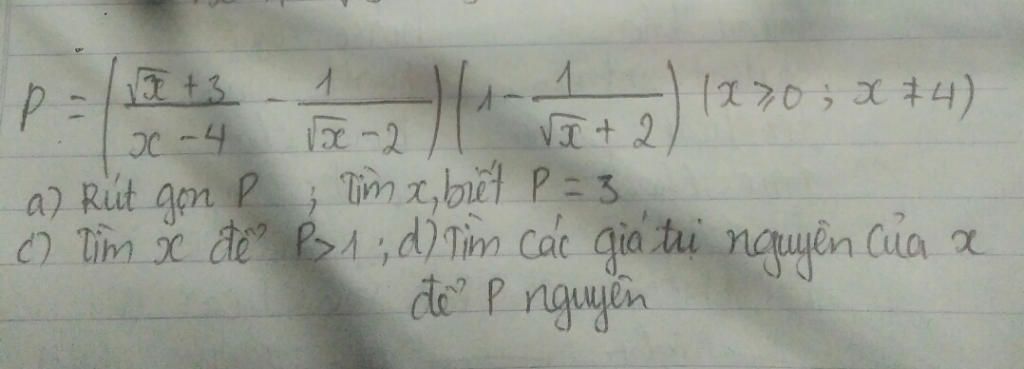 P = ( (√x + 3)/(x - 4) - 1/(√x - 2) ) ( 1 - 1/(√x + 2) ) (x ≥ 0 ; x ≠ 4)
a) Rút gọn P ; Tìm x, biết P = 3
c) Tìm x để P > 1 ; d) Tìm các giá trị nguyên của x
để P nguyên